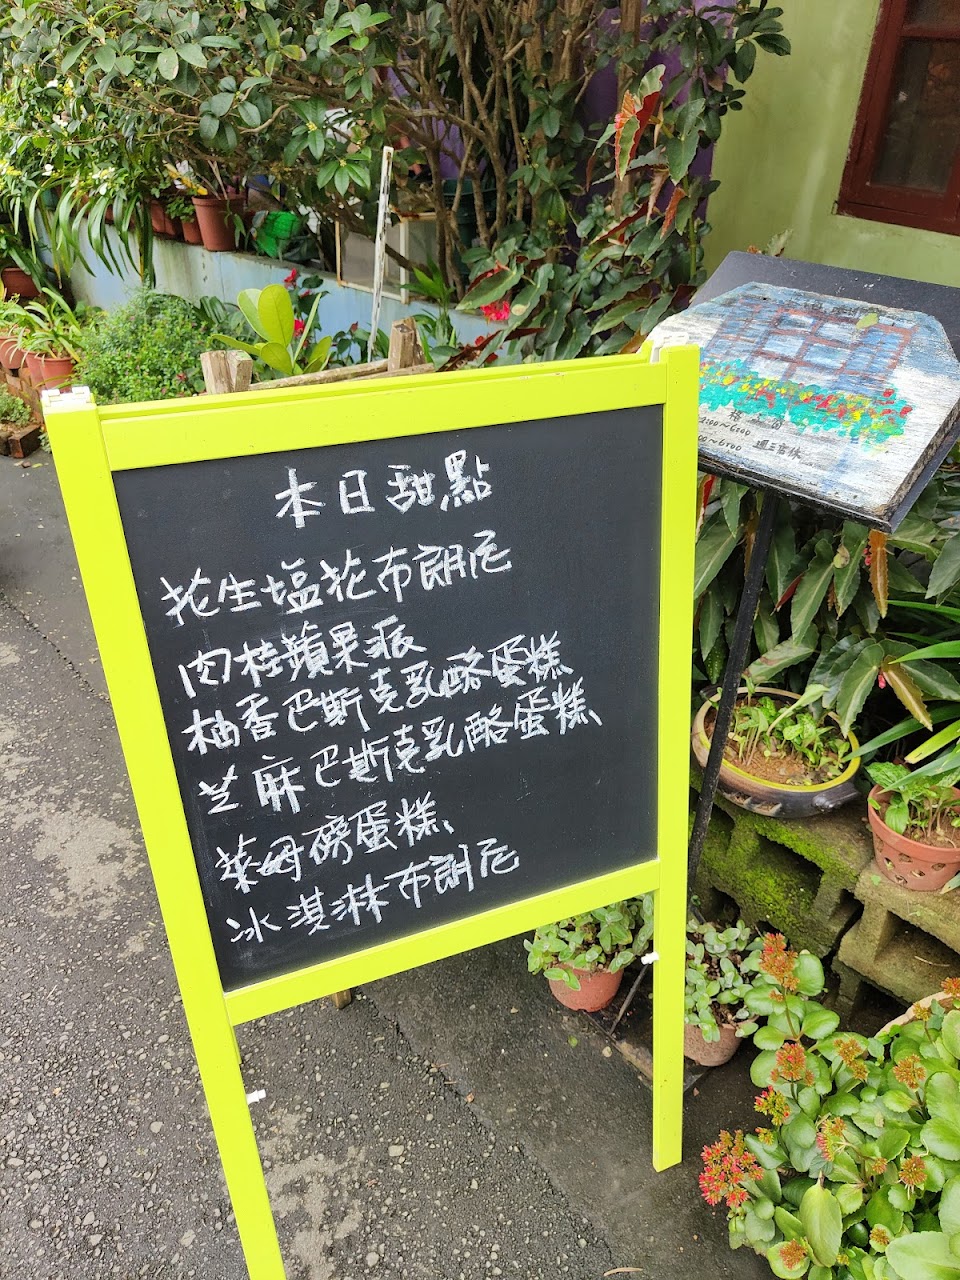 本日甜點
花生塩花布朗尼
肉桂蘋果派
柚香巴斯克乳酪蛋糕
芝麻巴斯克乳酪蛋糕
萊姆磅蛋糕
冰淇淋布朗尼
00~6:00
週三